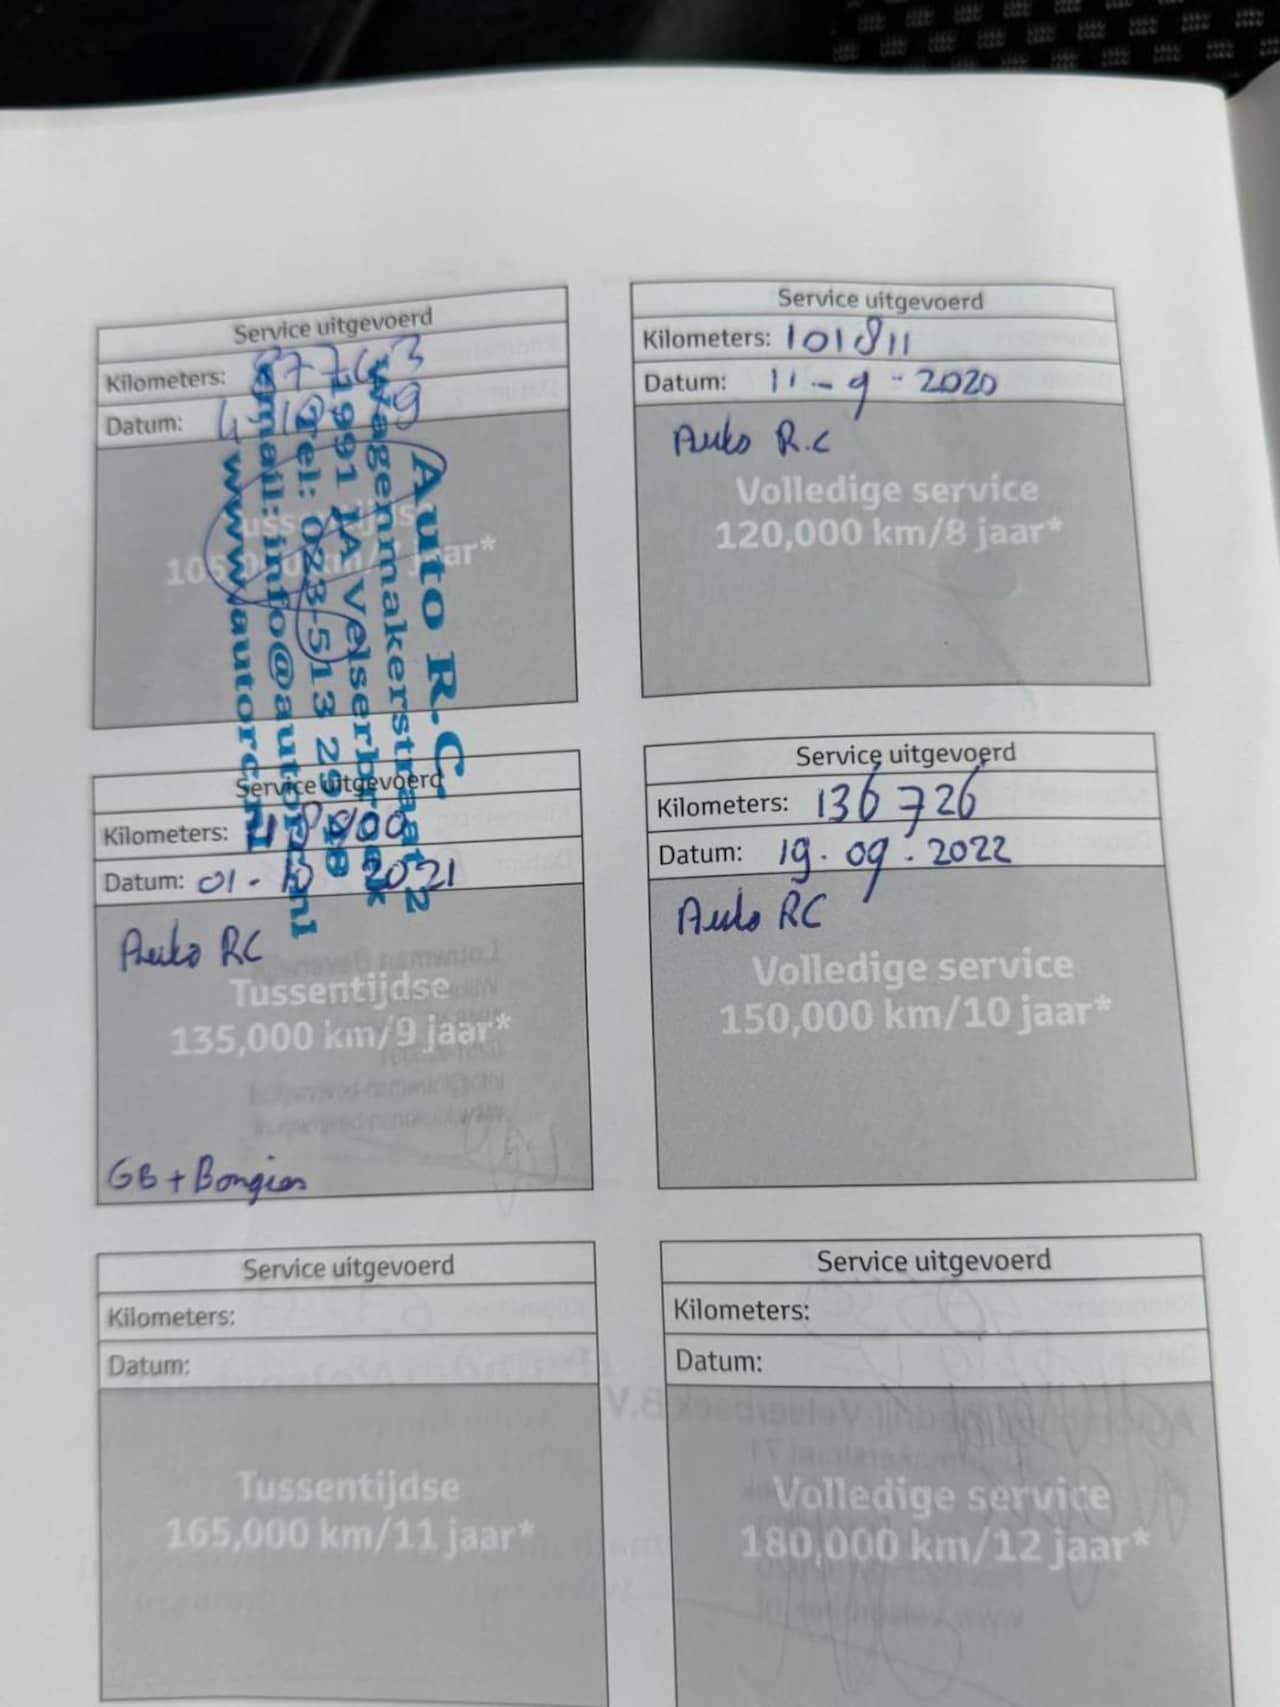 Service uitgevoerd
Kilometers: 87763
Datum:
Auto R.C.
Wagenmakerstraat 2
1991 JA Velserbroek
Tel: 023-513 29 18
www.autorc.nl
Service uitgevoerd
Kilometers: 101811
Datum: 11-9-2020
Auto R.C
Volledige service
120,000 km/8 jaar*
Service uitgevoerd
Kilometers:
Datum: 01-10 2021
Auto RC
Tussentijdse
135,000 km/9 jaar*
GB + Bougies
Service uitgevoerd
Kilometers: 136726
Datum: 19.09.2022
Auto RC
Volledige service
150,000 km/10 jaar*
Service uitgevoerd
Kilometers:
Datum:
Tussentijdse
165,000 km/11 jaar*
Service uitgevoerd
Kilometers:
Datum:
Volledige service
180,000 km/12 jaar*